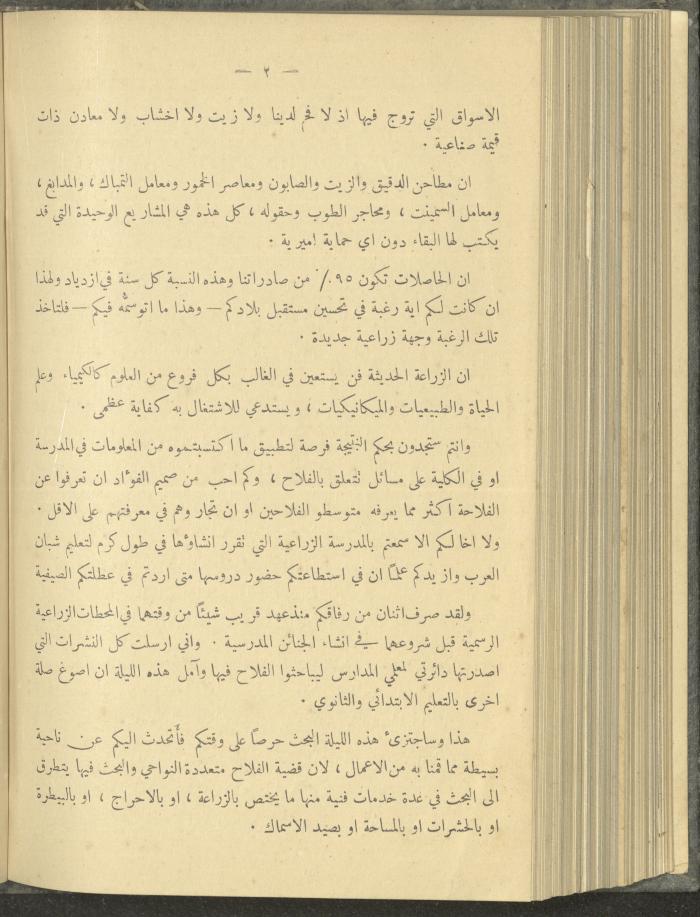 — ٢ —
الاسواق التي تروج فيها اذ لا فحم لدينا ولا زيت ولا اخشاب ولا معادن ذات
قيمة صناعية .
ان مطاحن الدقيق والزيت والصابون ومعاصر الخمور ومعامل التمباك ، والمدابغ ،
ومعامل السمينت ، ومحاجر الطوب وحقوله ، كل هذه هي المشاريع الوحيدة التي قد
يكتب لها البقاء دون اي حماية اميرية .
ان الحاصلات تكون ٩٥ ./' من صادراتنا وهذه النسبة كل سنة في ازدياد ولهذا
ان كانت لكم اية رغبة في تحسين مستقبل بلادكم — وهذا ما اتوسمُّه فيكم — فلتاخذ
تلك الرغبة وجهة زراعية جديدة .
ان الزراعة الحديثة فن يستعين في الغالب بكل فروع من العلوم كالكيمياء وعلم
الحياة والطبيعيات والميكانيكيات ، ويستدعي للاشتغال به كفاية عظمى .
وانتم ستجدون بحكم النتيجة فرصة لتطبيق ما اكتسبتموه من المعلومات في المدرسة
او في الكلية على مسائل تتعلق بالفلاح ، وكم احب من صميم الفؤاد ان تعرفوا عن
الفلاحة اكثر مما يعرفه متوسطو الفلاحين او ان تجاروهم في معرفتهم على الاقل .
ولا اخالكم الا سمعتم بالمدرسة الزراعية التي تقرر انشاؤها في طول كرم لتعليم شبان
العرب وازيدكم علماً ان في استطاعتكم حضور دروسها متى اردتم في عطلتكم الصيفية
ولقد صرف اثنان من رفاقكم منذ عهد قريب شيئاً من وقتهما في المحطات الزراعية
الرسمية قبل شروعهما في انشاء الجنائن المدرسية . واني ارسلت كل النشرات التي
اصدرتها دائرتي لمعلمي المدارس ليباحثوا الفلاح فيها وآمل هذه الليلة ان اصوغ صلة
اخرى بالتعليم الابتدائي والثانوي .
هذا وساجتزئ هذه الليلة البحث حرصاً على وقتكم فأتحدث اليكم عن ناحية
بسيطة مما قمنا به من الاعمال ، لان قضية الفلاح متعددة النواحي والبحث فيها يتطرق
الى البحث في عدة خدمات فنية منها ما يختص بالزراعة ، او بالاحراج ، او بالبيطرة
او بالحشرات او بالمساحة او بصيد الاسماك .